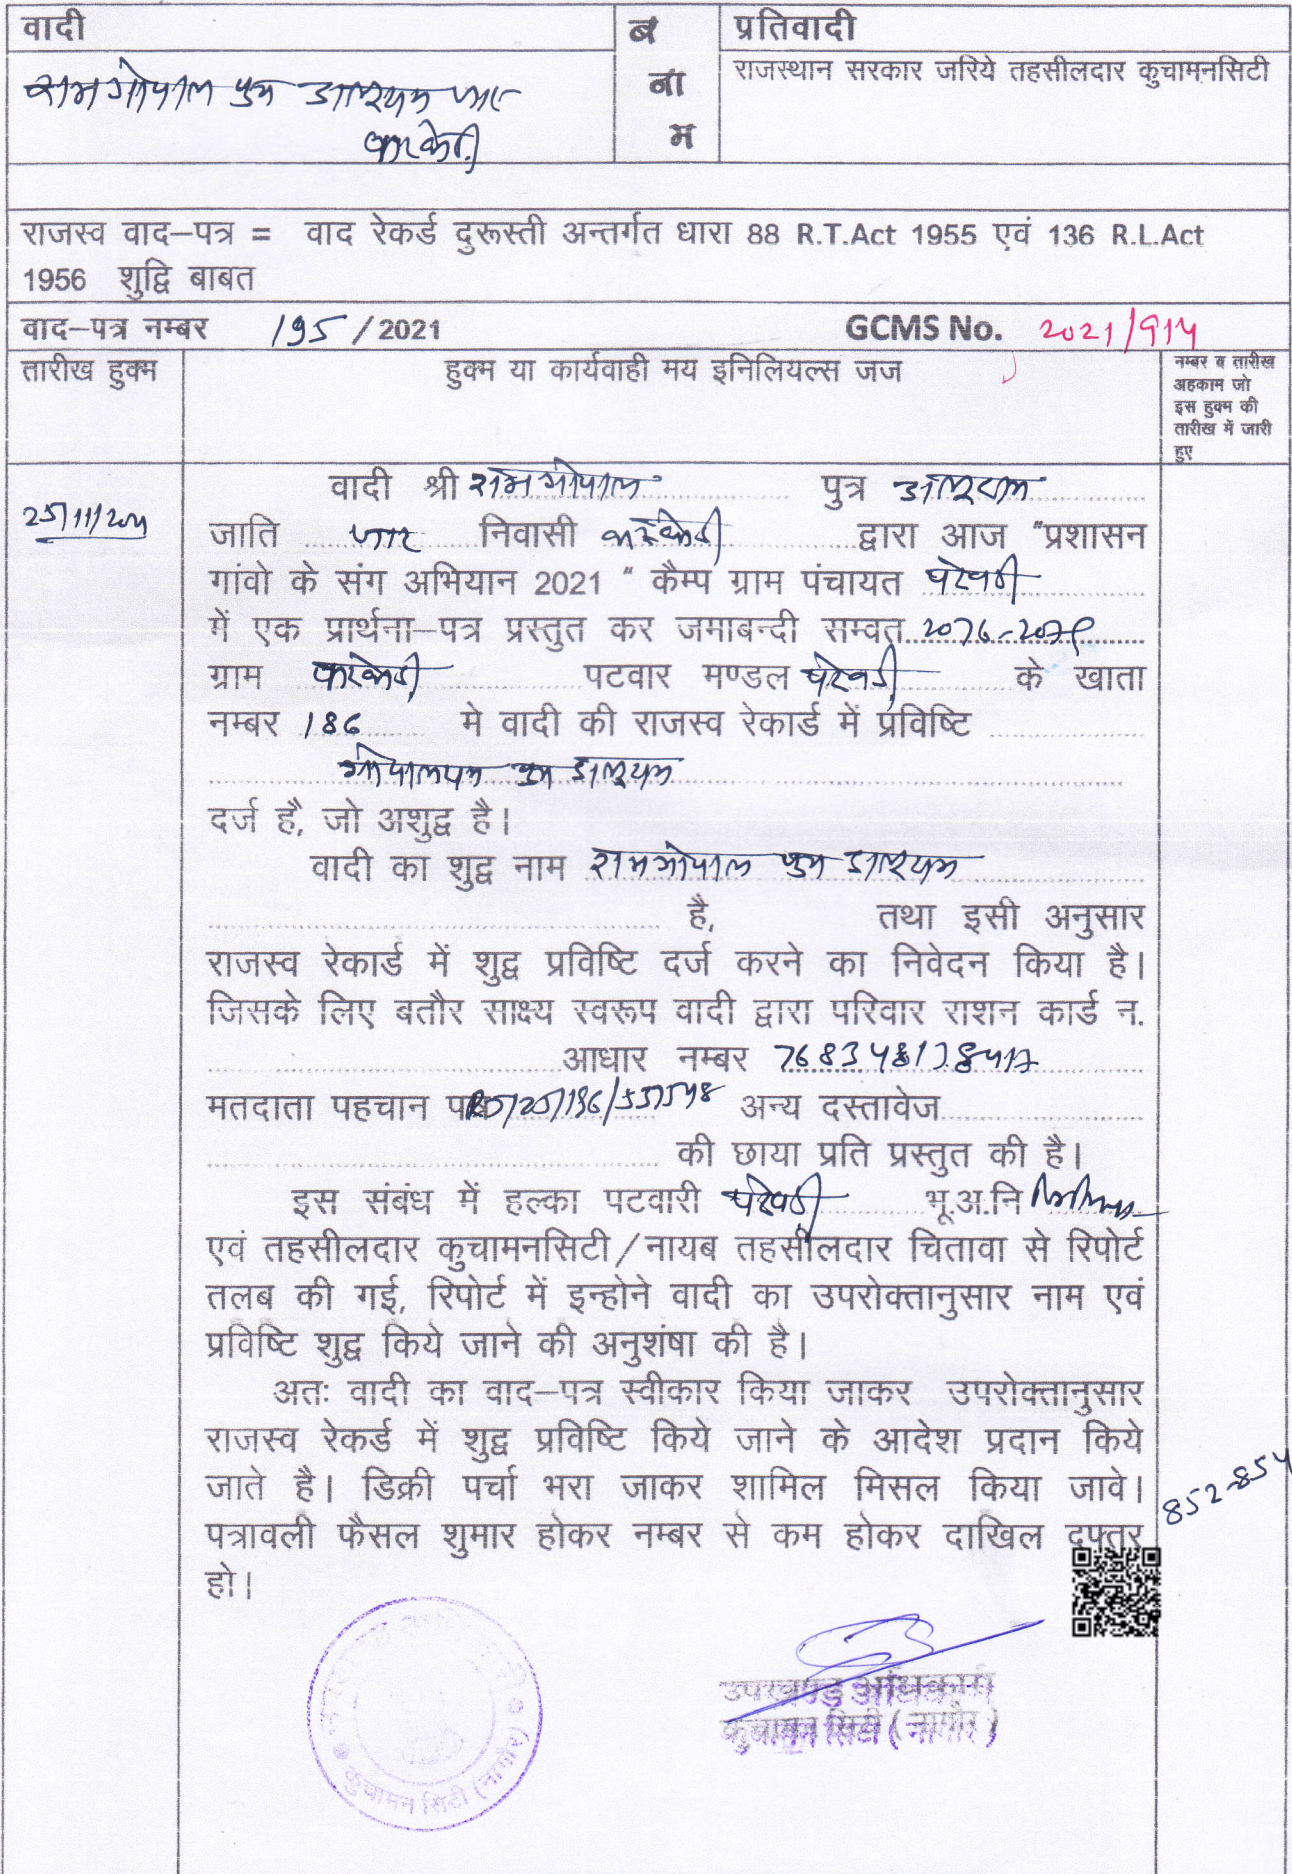 वादी
ब
ना
म
प्रतिवादी
रामगोपाल पुत्र जाट
करकेडी
राजस्थान सरकार जरिये तहसीलदार कुचामनसिटी
राजस्व वाद–पत्र = वाद रेकर्ड दुरूस्ती अन्तर्गत धारा 88 R.T.Act 1955 एवं 136 R.L.Act
1956 शुद्वि बाबत
वाद–पत्र नम्बर 195 / 2021 GCMS No. 2021/914
तारीख हुक्म
हुक्म या कार्यवाही मय इनिलियल्स जज
नम्बर व तारीख
अहकाम जो
इस हुक्म की
तारीख में जारी
हुए
25/11/2021
वादी श्री रामगोपाल पुत्र
जाति जाट निवासी करकेडी द्वारा आज "प्रशासन
गांवो के संग अभियान 2021 " कैम्प ग्राम पंचायत परेवडी
में एक प्रार्थना–पत्र प्रस्तुत कर जमाबन्दी सम्वत 2076-2079
ग्राम करकेडी पटवार मण्डल परेवडी के खाता
नम्बर 186 मे वादी की राजस्व रेकार्ड में प्रविष्टि
पुत्र
दर्ज है, जो अशुद्व है।
वादी का शुद्व नाम रामगोपाल पुत्र
है, तथा इसी अनुसार
राजस्व रेकार्ड में शुद्व प्रविष्टि दर्ज करने का निवेदन किया है।
जिसके लिए बतौर साक्ष्य स्वरूप वादी द्वारा परिवार राशन कार्ड न.
आधार नम्बर
मतदाता पहचान अन्य दस्तावेज
की छाया प्रति प्रस्तुत की है।
इस संबंध में हल्का पटवारी परेवडी भू.अ.नि
एवं तहसीलदार कुचामनसिटी/नायब तहसीलदार चितावा से रिपोर्ट
तलब की गई, रिपोर्ट में इन्होने वादी का उपरोक्तानुसार नाम एवं
प्रविष्टि शुद्व किये जाने की अनुशंषा की है।
अतः वादी का वाद–पत्र स्वीकार किया जाकर उपरोक्तानुसार
राजस्व रेकर्ड में शुद्व प्रविष्टि किये जाने के आदेश प्रदान किये
जाते है। डिक्री पर्चा भरा जाकर शामिल मिसल किया जावे।
पत्रावली फैसल शुमार होकर नम्बर से कम होकर दाखिल दफ्तर
हो।
852-854
उपखण्ड अधिकारी
कुचामन सिटी (नागौर)
कुचामन सिटी (नागौर)